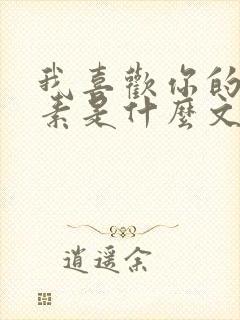 我喜歡你的
素是什麼文
逍遥余